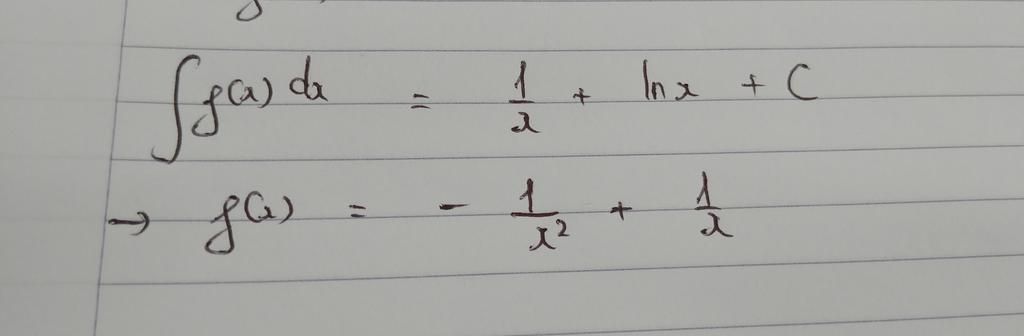 ∫ f(x) dx = 1/x + ln x + C
→ f(x) = - 1/x² + 1/x